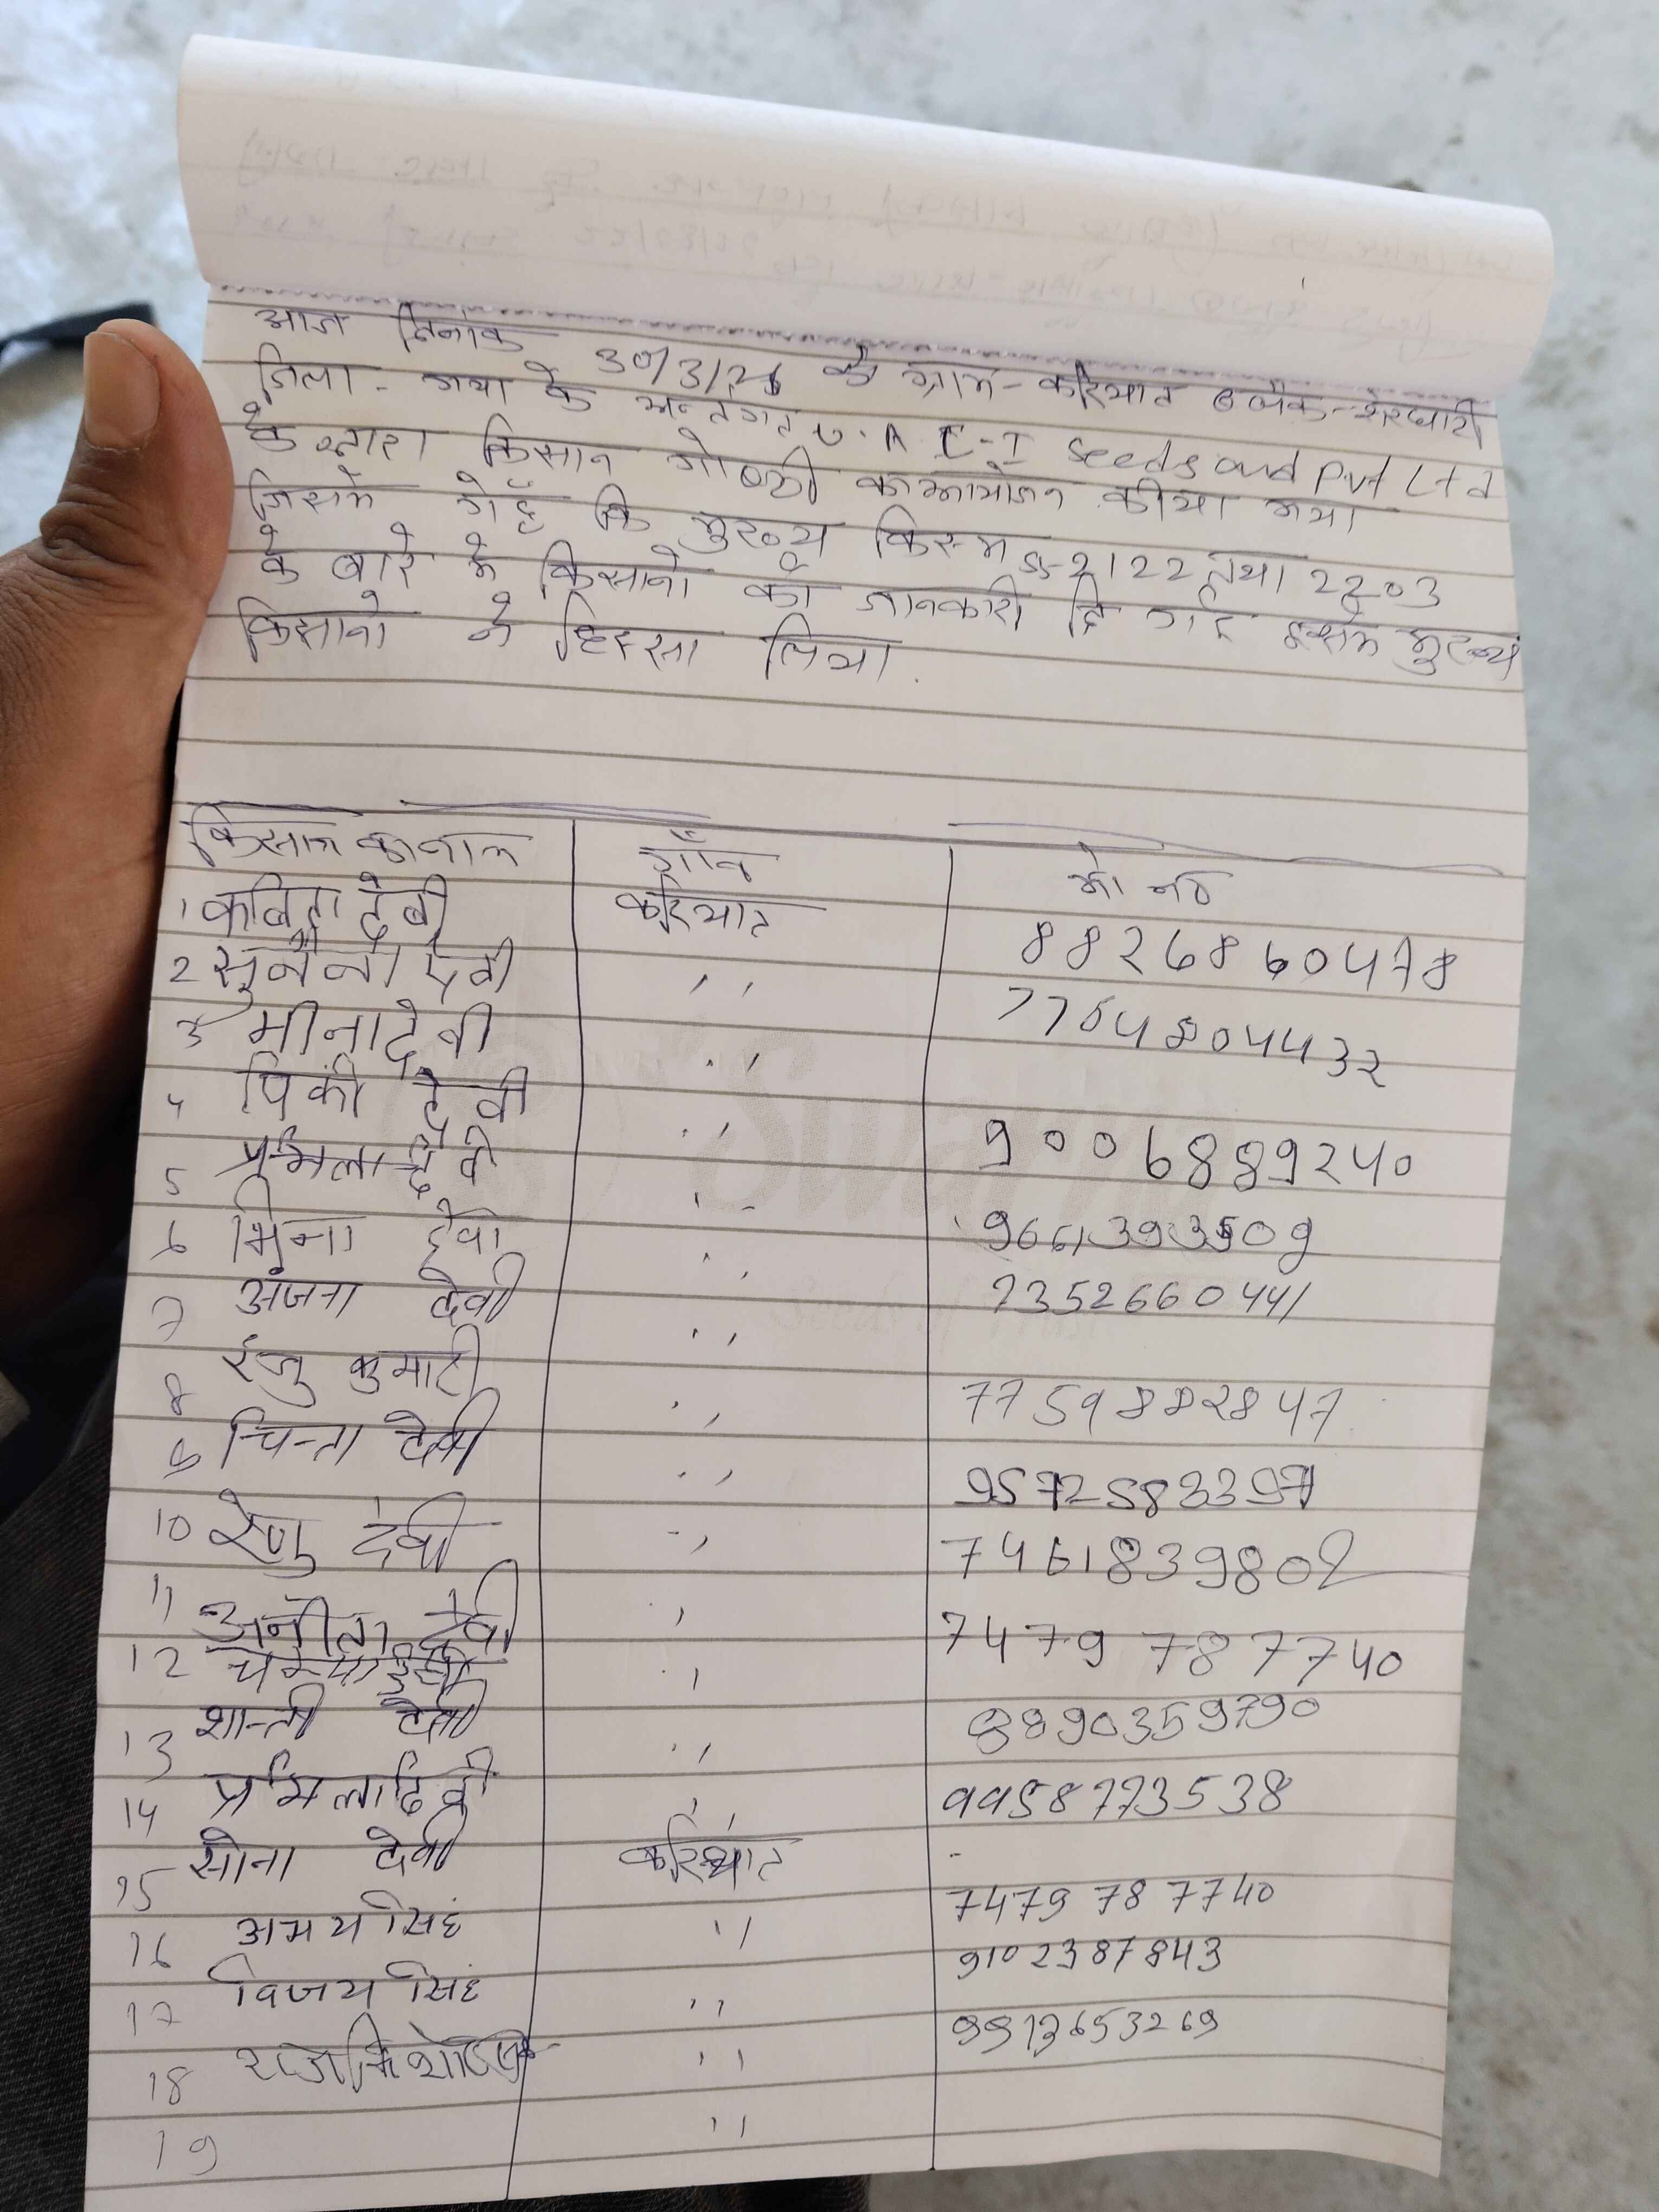 आज दिनांक 30/3/26 को ग्राम - करियात ब्लॉक - शेरघाटी
जिला - गया के अन्तर्गत U.A E-I Seeds and Pvt Ltd
के द्वारा किसान गोष्ठी का आयोजन कीया गया
जिसमे गेहूँ कि मुख्य किस्म SS-2122 तथा 2203
के बारे मे किसानो को जानकारी दि गई इसमे मुख्य
किसानो ने हिस्सा लिया.
किसान का नाम गाँव मो नं०
1 कविता देवी करियात 8826860478
2 सुनैना देवी ,, 7764804432
3 मीना देवी ,,
4 पिंकी देवी ,, 9006889240
5 प्रमिला देवी ,, 9661393509
6 मिना देवी ,, 7352660441
7 अंजना देवी ,,
8 रंजु कुमारी ,, 7759882847
9 चिन्ता देवी ,, 9572583397
10 रेणु देवी ,, 7461839802
11 अनीता देवी , 7479787740
12 चम्पा देवी ,, 8890359790
13 शान्ती देवी ,, 9958773538
14 प्रमिला देवी ,, -
15 सोना देवी करियात 7479787740
16 अभय सिंह ,, 9102387843
17 विजय सिंह ,, 9913653269
18 राज किशोर ,,
19 ,,